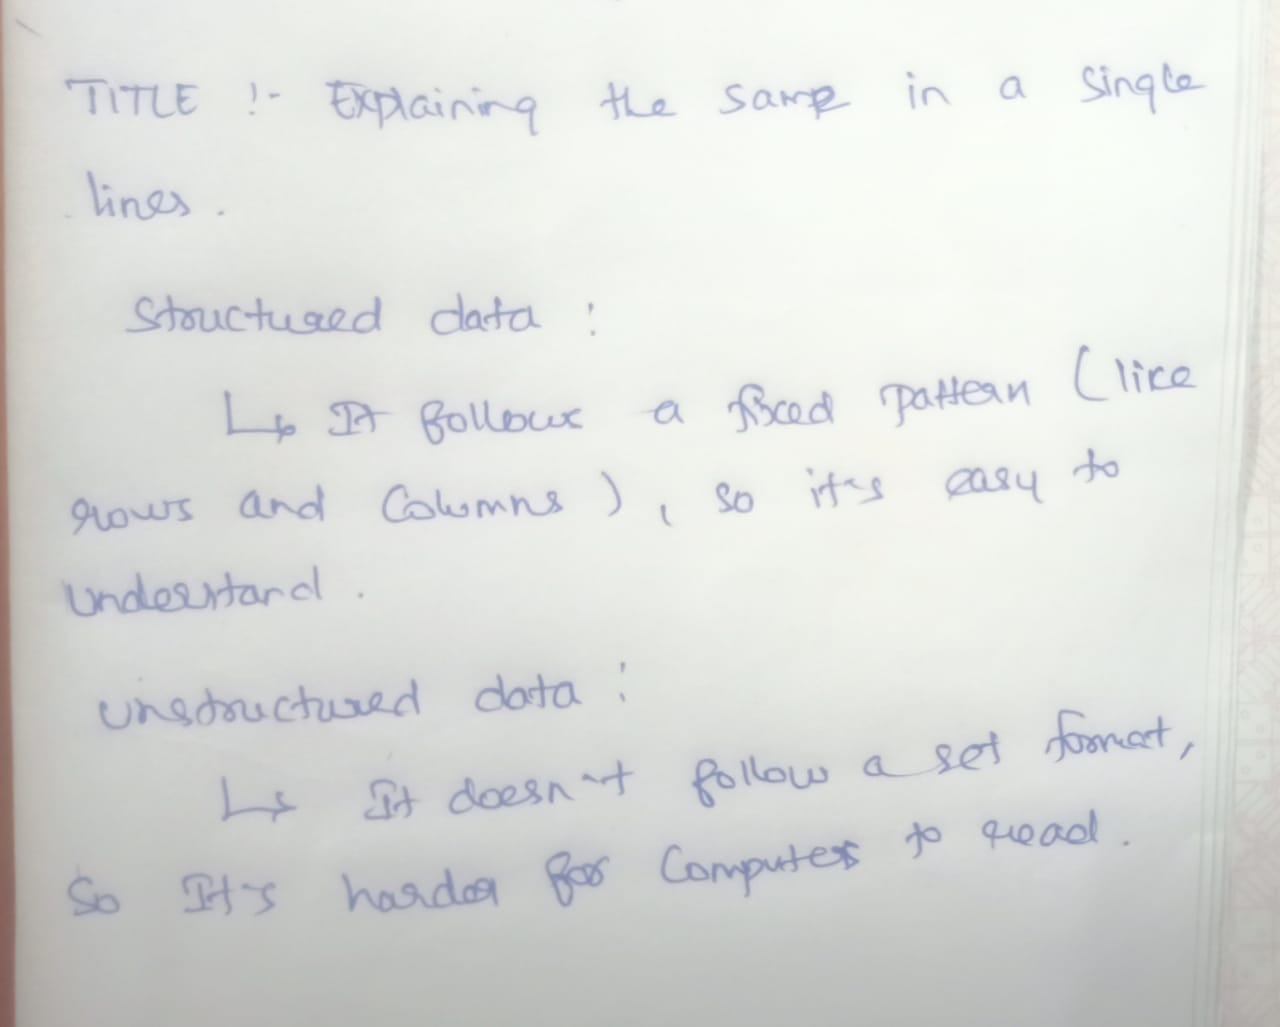 TITLE :- Explaining the same in a single
lines.
Structured data :
↳ It follows a fixed pattern (like
rows and Columns), so it's easy to
understand.
unstructured data :
↳ It doesn't follow a set format,
So It's harder for Computers to read.